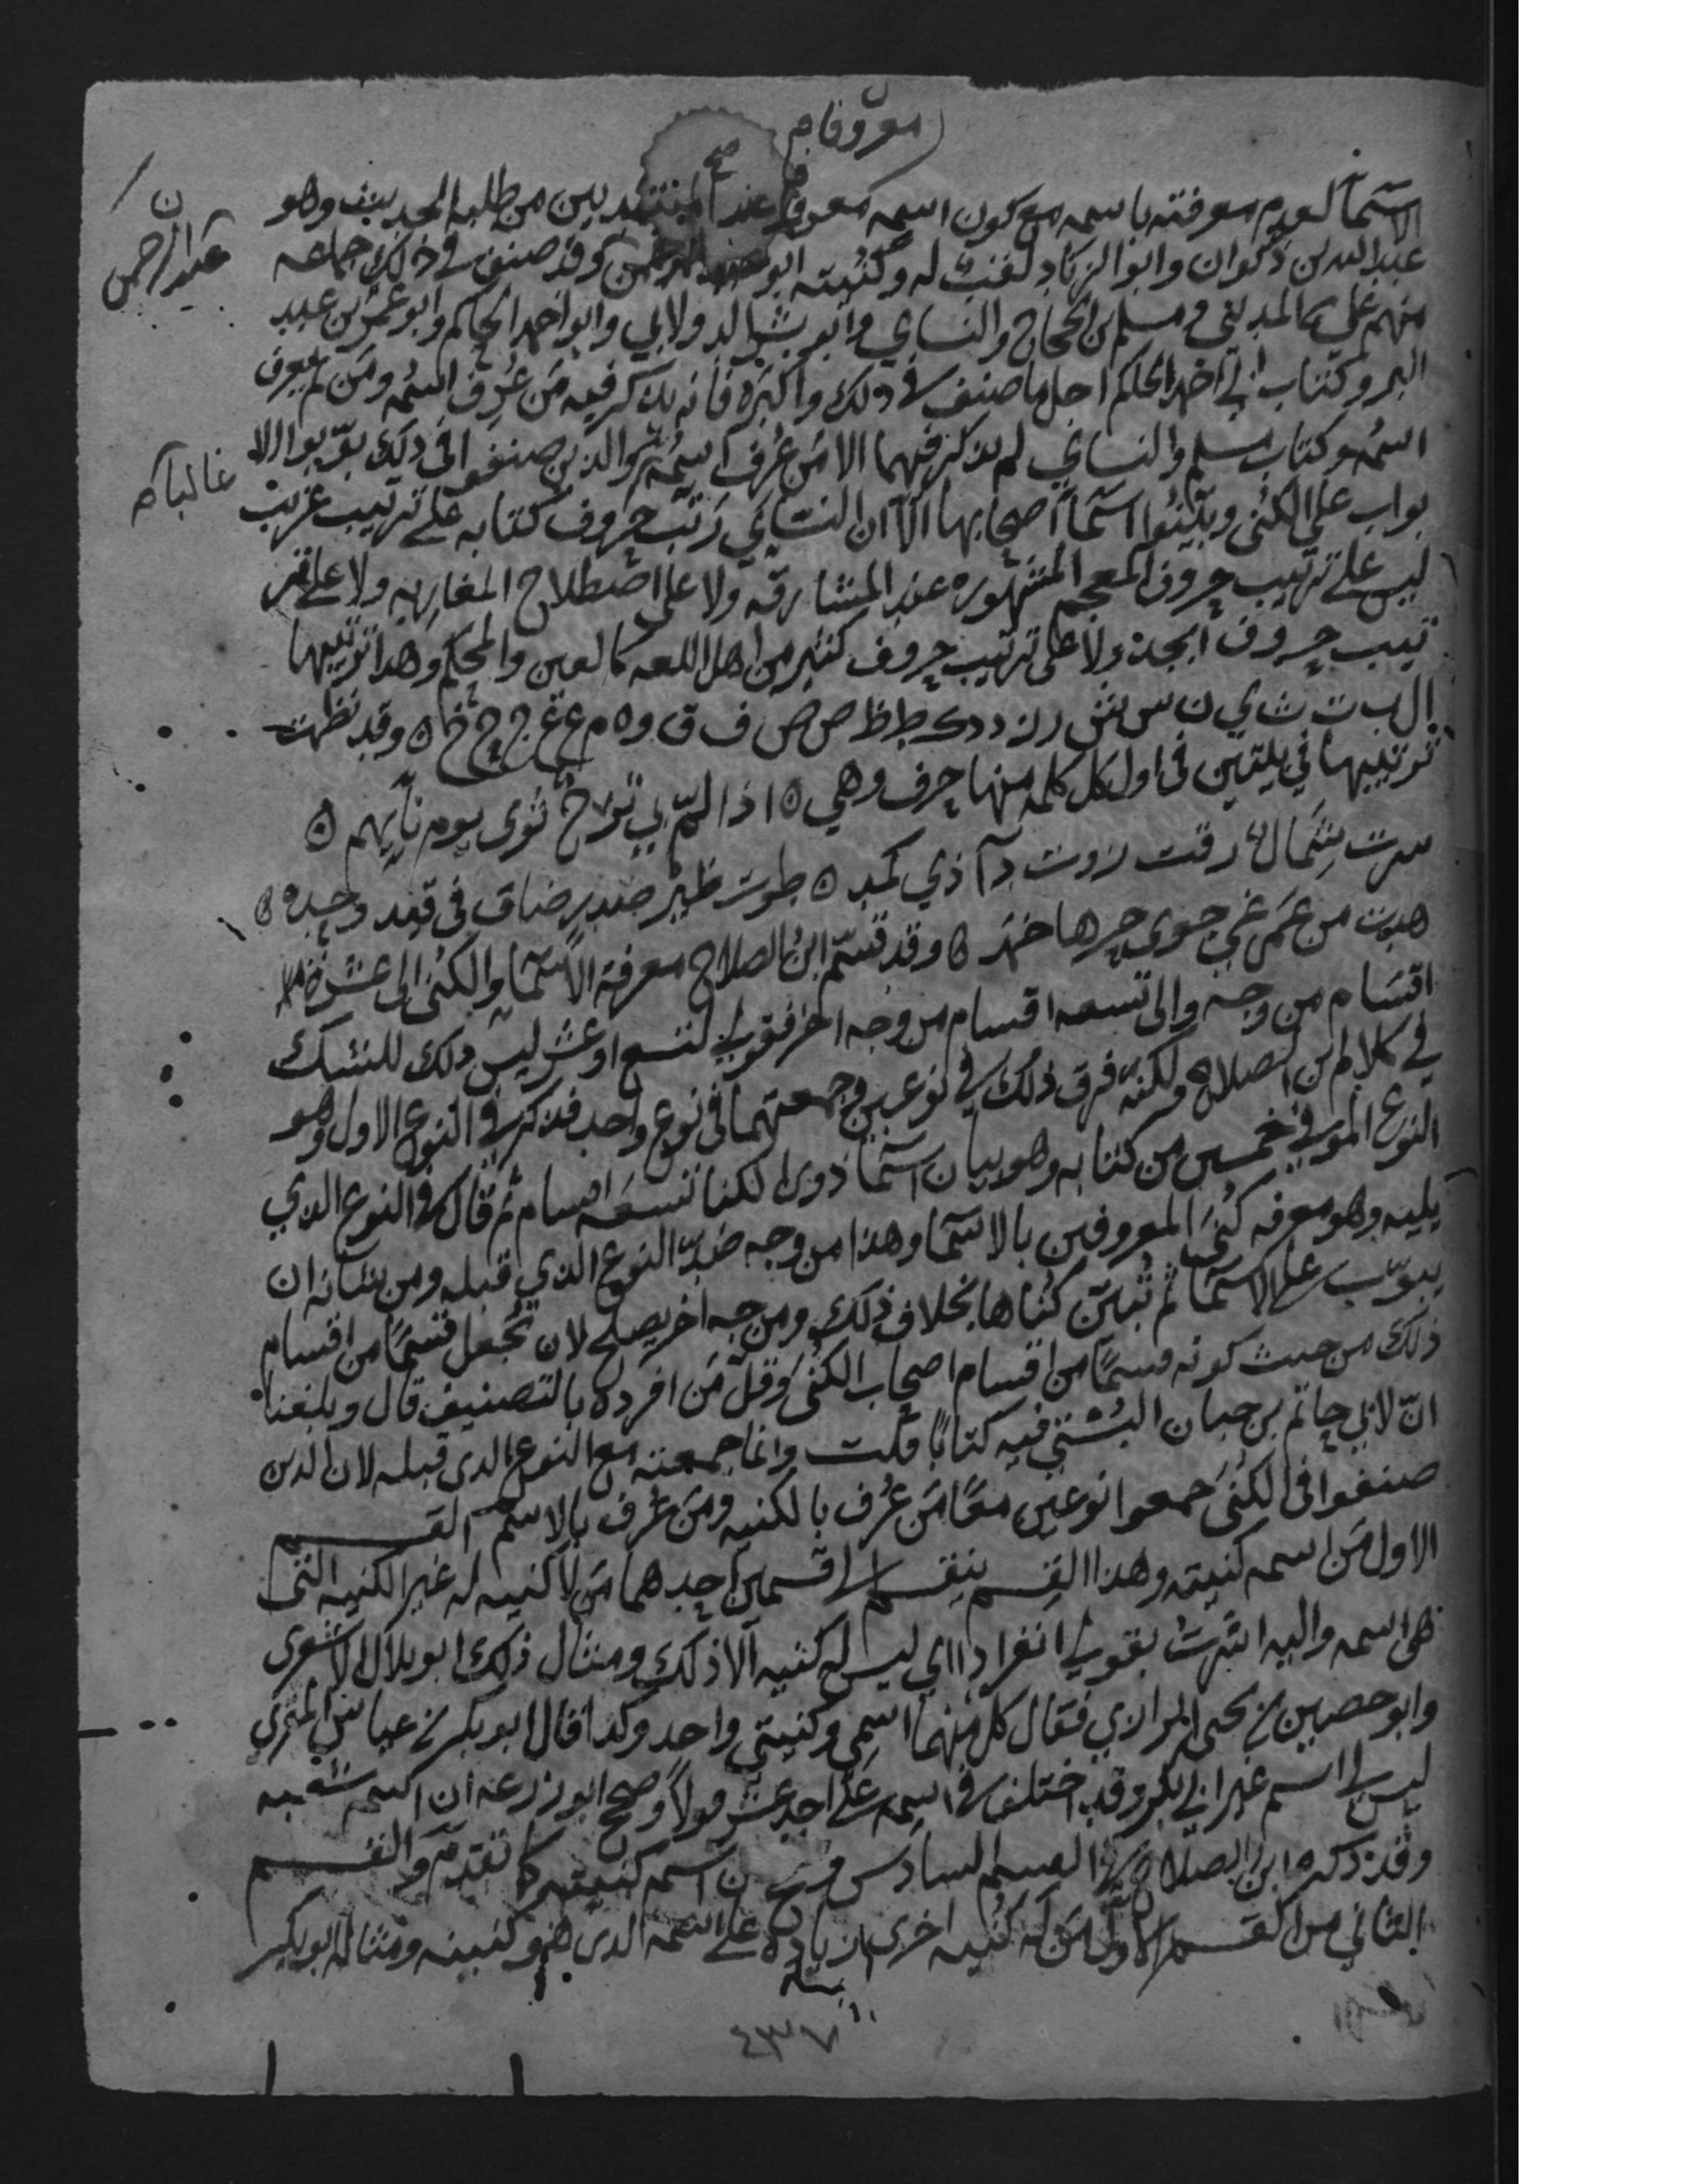 معروفا م
الاسما لعدم معرفته باسمه مع كون اسمه معروفا عند المبتديين من طلبه الحديث وهو
عبد الله بن ذكوان وابوا الزناد لقب له وكنيته ابو عبد الرحمن وقد صنف في ذلك جماعه
عبد الرحمن
منهم علي بن المديني ومسلم بن الحجاج والنساي وابو بشر الدولابي وابو احمد الحاكم وابو عمر بن عبد
البر وكتاب ابي احمد الحاكم اجل ما صنف في ذلك واكبره فانه يذكر فيه من عرف اسمه ومن لم يعرف
اسمه وكتاب مسلم والنساي لم يذكر فيهما الا من عرف اسمه والذين صنفوا في ذلك بوبوا الا
غالبا م
بواب على الكنى وبينوا اسما اصحابها الا ان النساي رتب حروف كتابه على ترتيب غريب
ليس على ترتيب حروف المعجم المشهوره عند المشارقه ولا على اصطلاح المغاربه ولا على تر
تيب حروف ابجد ولا على ترتيب حروف كثير من اهل اللغه كالعين والمحكم وهذا ترتيبها
ا ل ب ت ث ي ن س ش ر ز د ذ ك ط ظ ص ض ف ق و ه م ع غ ج ح خ ه وقد نظمت
ترتيبها في بيتين في اول كل كلمه منها حرف وهي ه اذا لم بي ثوى يوم نايهم ه
سرت شمال رقت زوت دا ذي كمد ه طوت ظبر صدر ضاق في قيد وجده ه
هوت من عمى غي جوى حرها خمد ه وقد قسم ابن الصلاح معرفه الاسما والكنى الى عشره
اقسام من وجه والى تسعه اقسام من وجه اخر فقولي لتسع او عشر ليس ذلك للشك
في كلام ابن الصلاح ولكنه فرق ذلك في نوعين وجمعتهما في نوع واحد فذكر في النوع الاول وهو
النوع الموفي خمسين من كتابه وهو بيان اسما ذوى الكنا تسعه اقسام ثم قال في النوع الذي
يليه وهو معرفه كنى المعروفين بالاسما وهذا من وجه ضد النوع الذي قبله ومن شانه ان
يبوب على الاسما ثم تبين كناها بخلاف ذلك ومن وجه اخر يصلح لان تجعل قسما من اقسام
ذلك من حيث كونه قسما من اقسام اصحاب الكنى وقل من افرده بالتصنيف قال وبلغنا
ان لابي حاتم بن حبان البستي فيه كتابا قلت وانما جمعته مع النوع الذي قبله لان الذين
صنفوا في الكنى جمعوا النوعين معا من عرف بالكنيه ومن عرف بالاسم القسم
الاول من اسمه كنيته وهذا القسم ينقسم الى قسمين احدهما من لا كنيه له غير الكنيه التى
هي اسمه واليه اشرت بقولي انفرادا اي ليس له كنيه الا ذلك ومثال ذلك ابو بلال الاشعرى
وابو حصين بن يحيى الرازي فقال كل منهما اسمي وكنيتي واحد وكذا قال ابو بكر بن عياش المقري
ليس لي اسم غير ابي بكر وقد اختلف في اسمه على احد عشر قولا وصحح ابو زرعه ان اسمه شعبه
وقد ذكره ابن الصلاح في القسم السادس ان اسمه كنيته كما تقدم والقسم
الثاني من القسم الاول من له كنيه اخرى زيادة على اسمه الذي هو كنيته ومثاله ابو بكر
٤٣٧